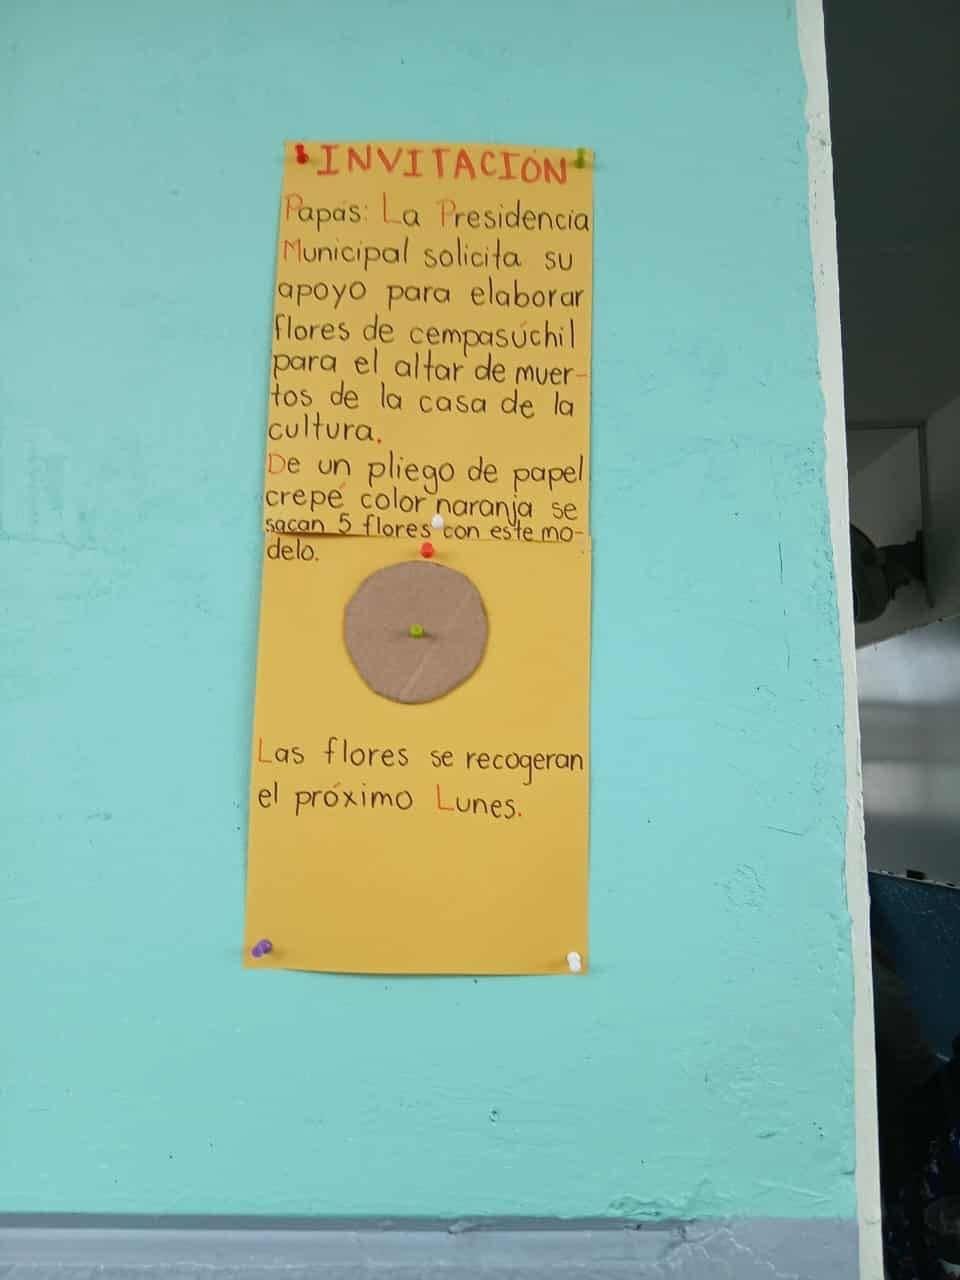 INVITACIÓN
Papás: La Presidencia
Municipal solicita su
apoyo para elaborar
flores de cempasúchil
para el altar de muer-
tos de la casa de la
cultura.
De un pliego de papel
crepé color naranja se
sacan 5 flores con este mo-
delo.
Las flores se recogeran
el próximo Lunes.